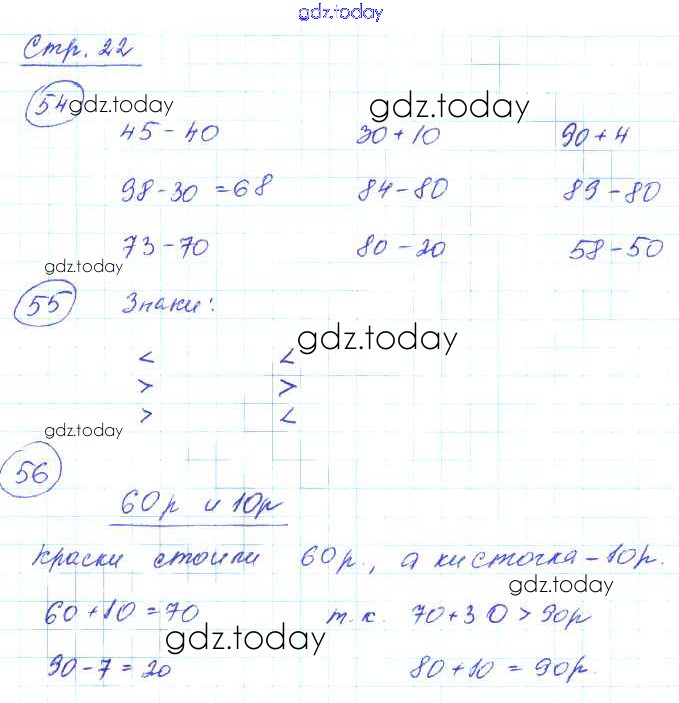 gdz.today
Стр. 22
54 gdz.today gdz.today
45-40 30+10 90+4
98-30=68 84-80 89-80
73-70 80-20 58-50
gdz.today
55 Знаки:
< < gdz.today
> >
> <
gdz.today
56
60р и 10р
Краски стоили 60р., а кисточка-10р.
gdz.today
60+10=70 т.к. 70+30>90р
gdz.today
90-7=20 80+10=90р.